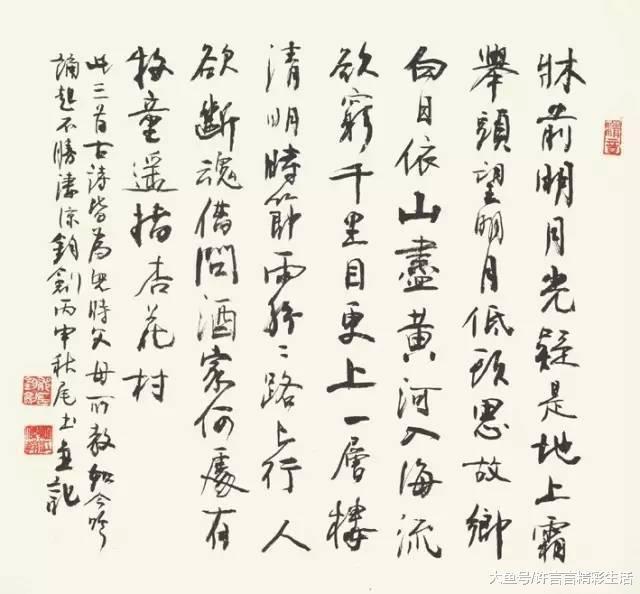 牀前明月光疑是地上霜
舉頭望明月低頭思故鄉
白日依山盡黃河入海流
欲窮千里目更上一層樓
清明時節雨紛〻路上行人
欲斷魂借問酒家何處有
牧童遥指杏花村
此三首古詩皆為兒時父母所教如今吟
誦起不勝凄涼丙申秋尾書並記
大鱼号/许言言精彩生活